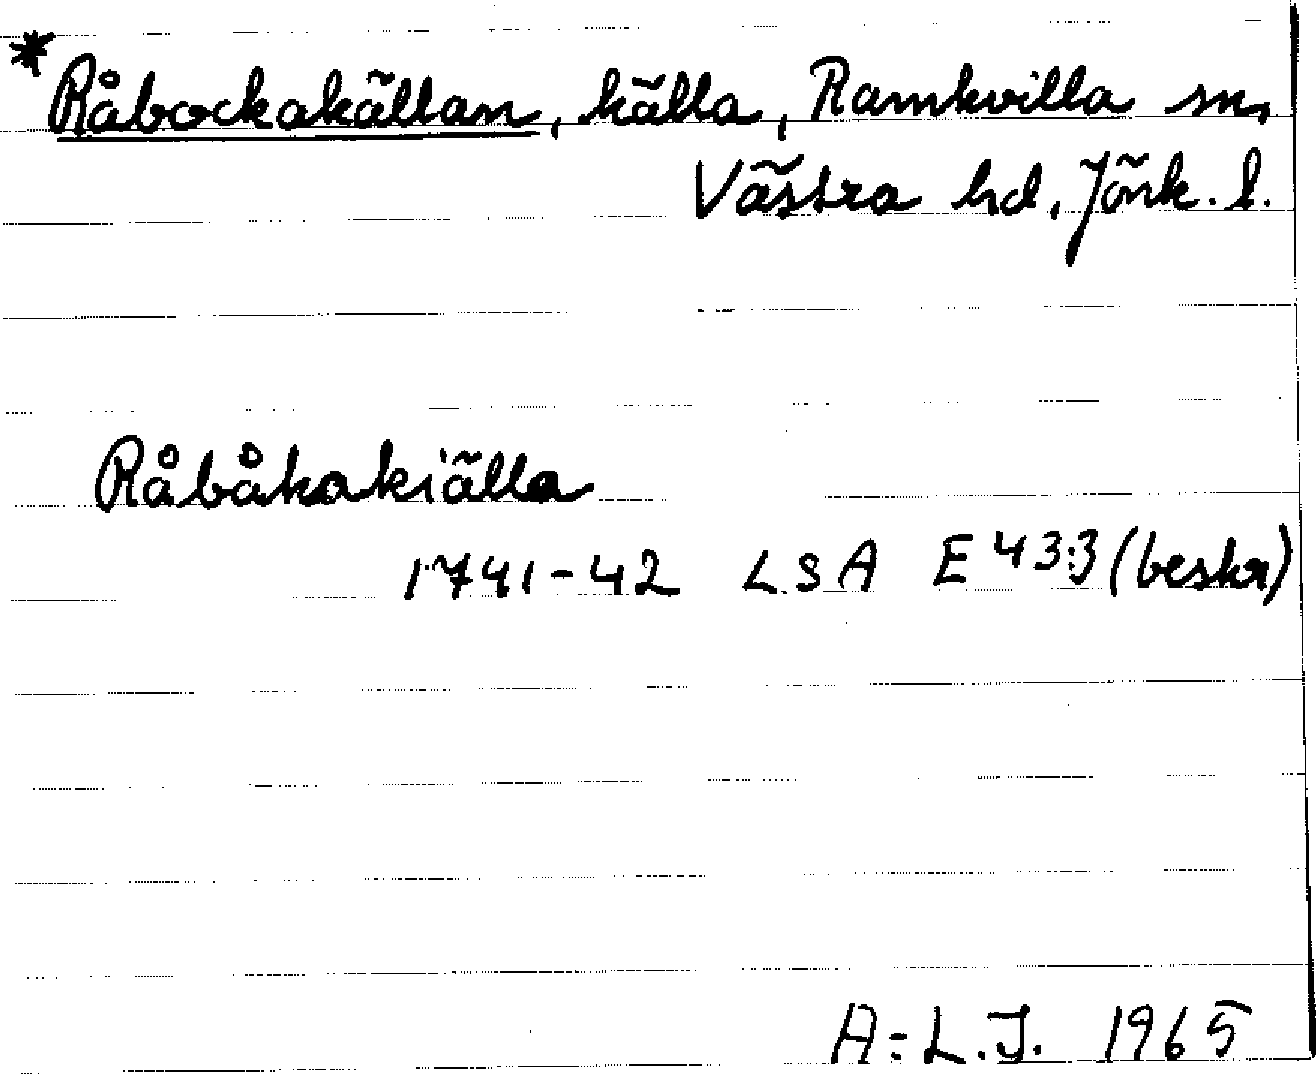 *Råbockakällan, källa, Ramkvilla sn,
Västra hd, Jönk. l.
Råbåkakiälla
1741-42 LSA E 43:3 (beskr)
A-L.J. 1965